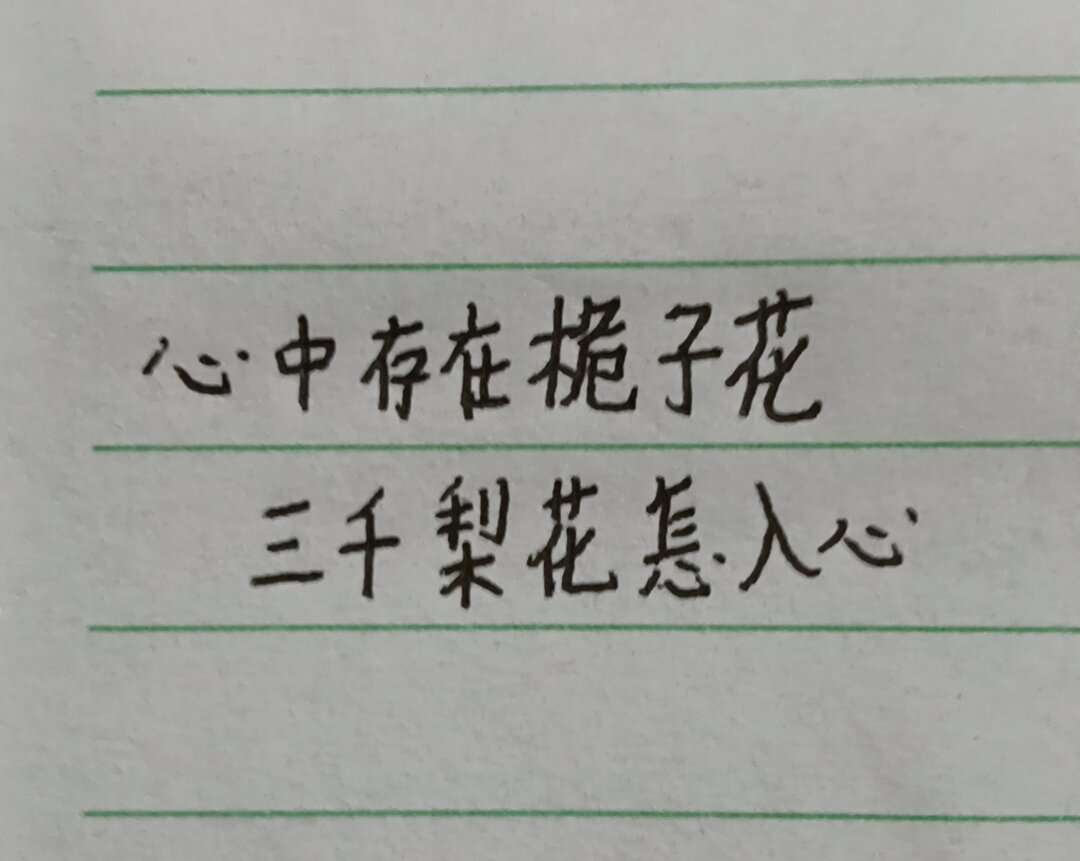 心中存在栀子花
三千梨花怎入心